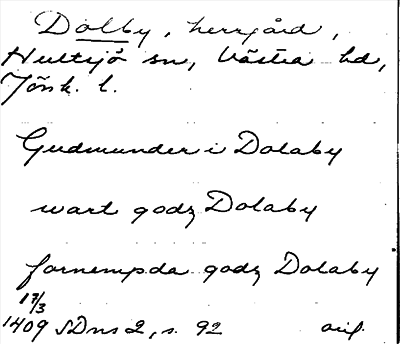 Dalby, herrgård,
Hultsjö sn, Västra hd,
Jönk. l.
Gudmunder i Dalaby
wart godz Dalaby
fornempda godz Dalaby
17/3
1409 SDns 2, s. 92 avs.